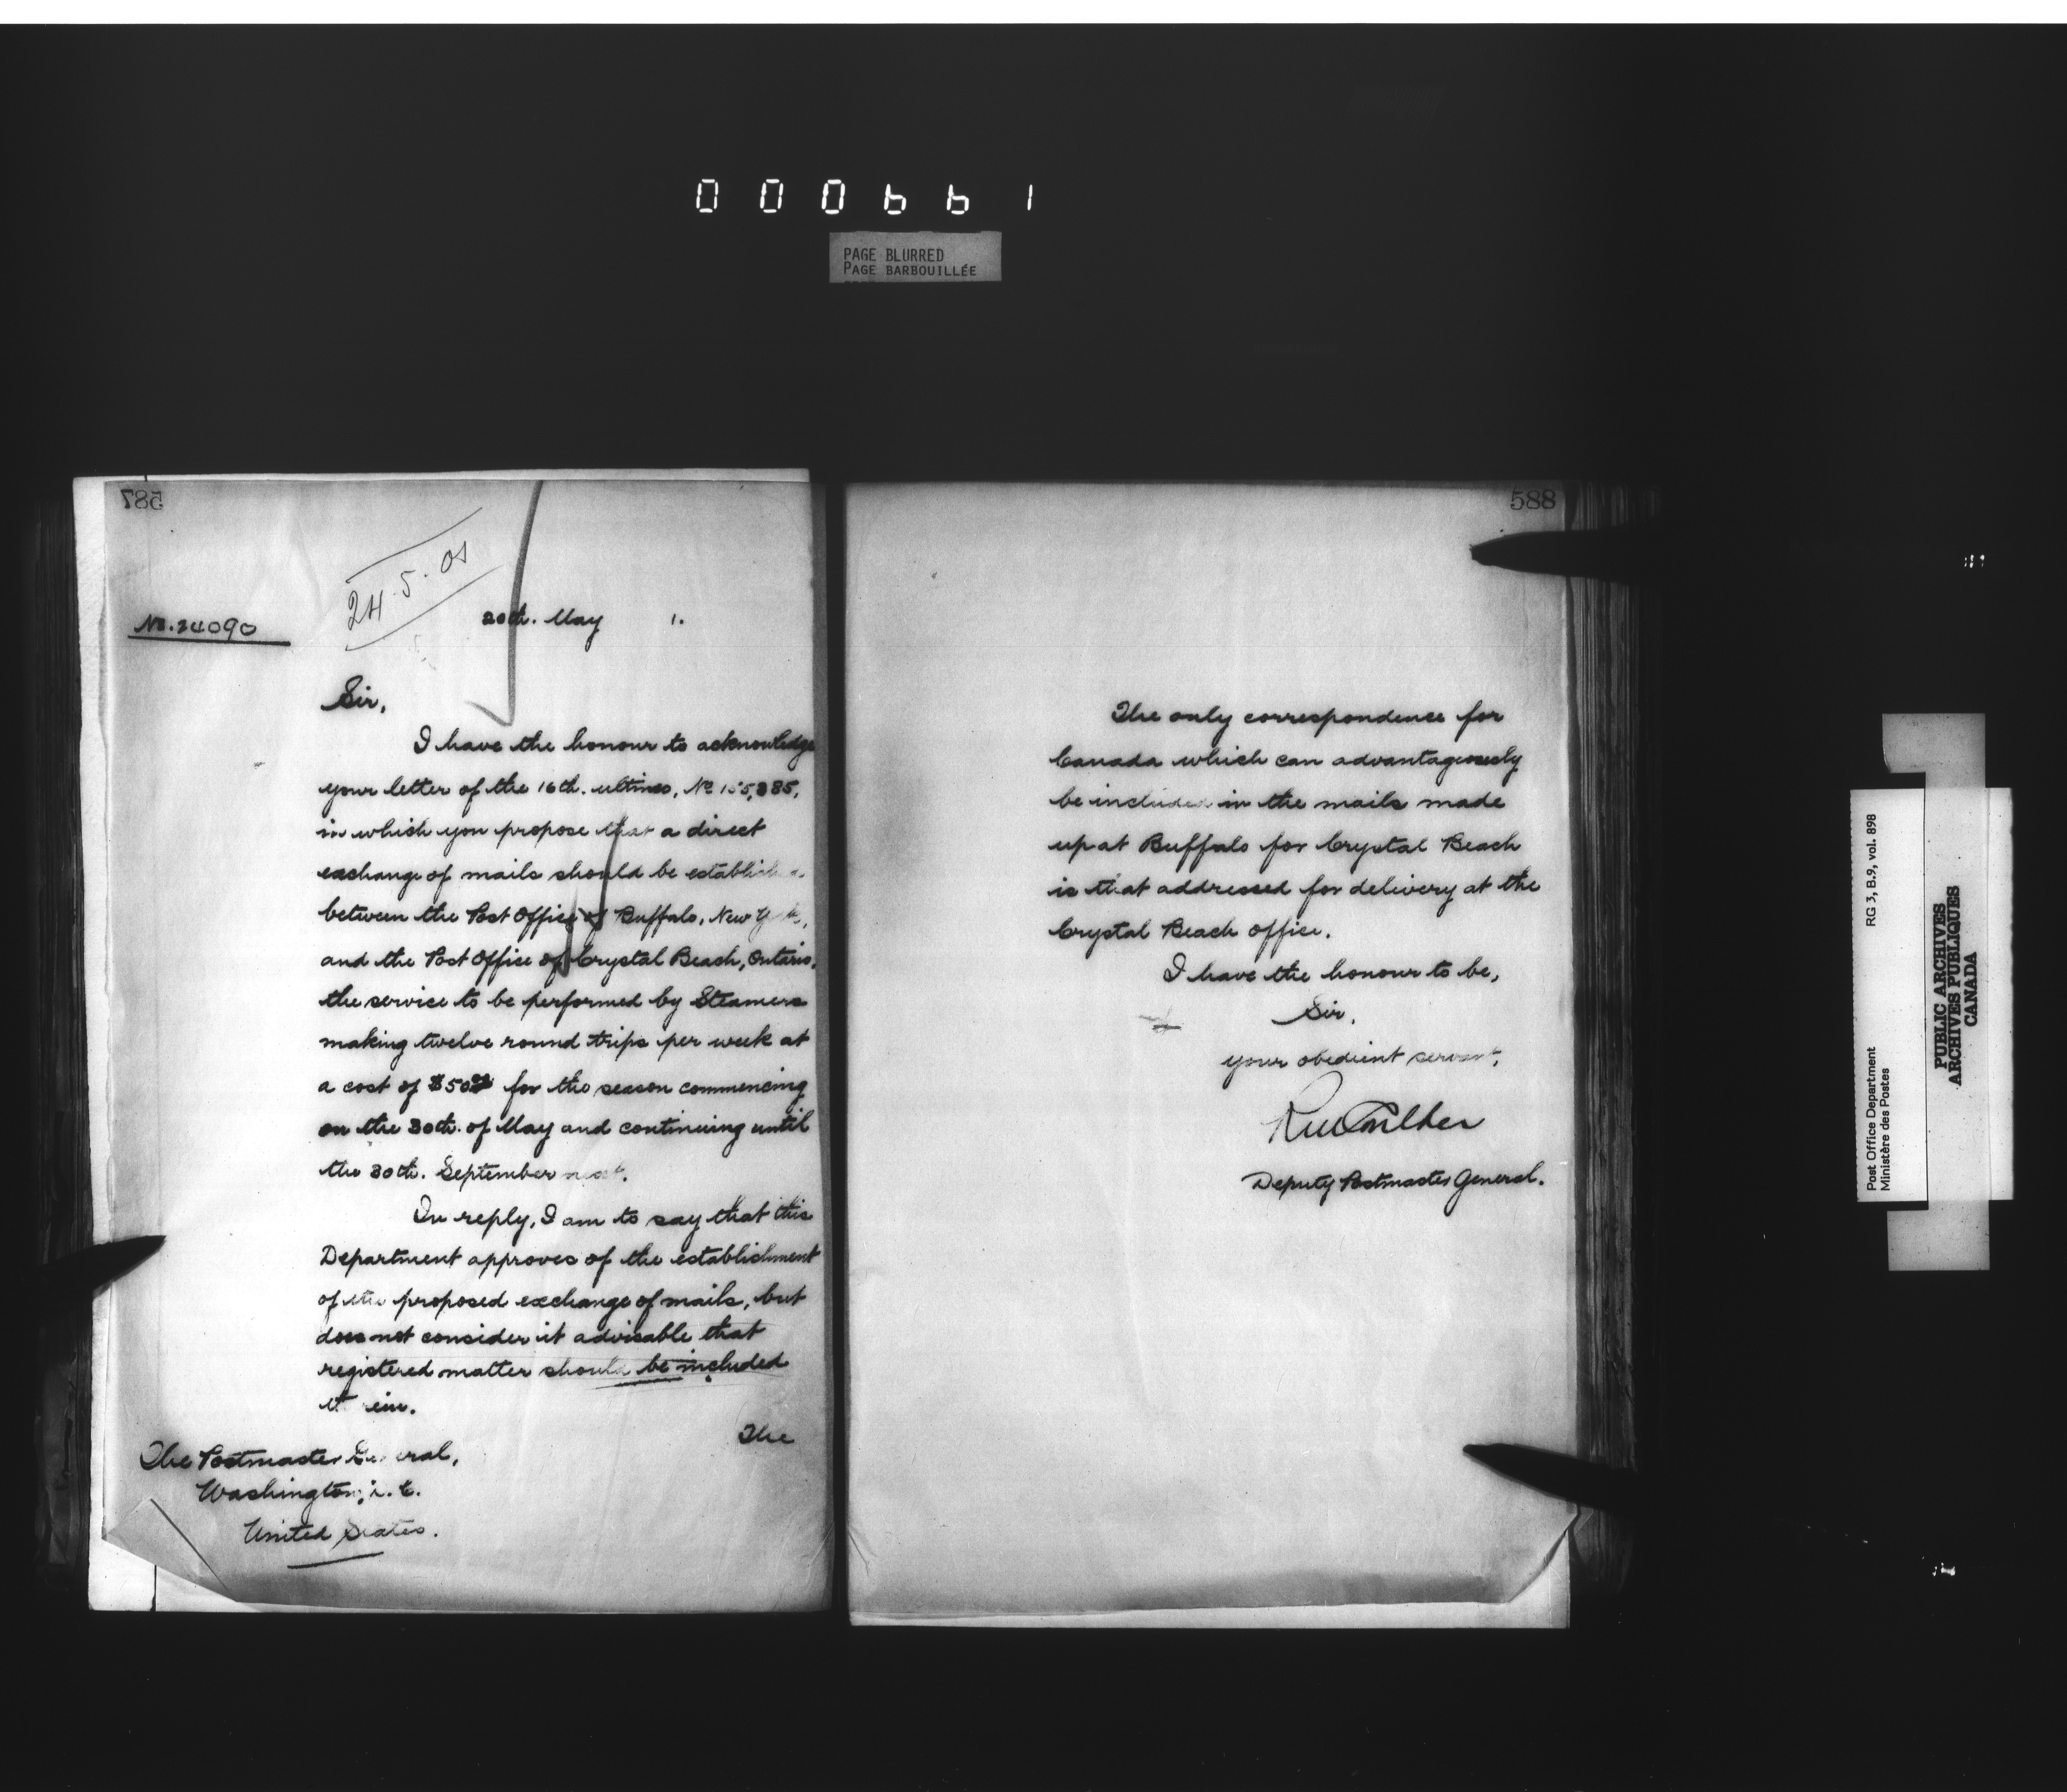 000661
PAGE BLURRED
PAGE BARBOUILLÉE
587
24.5.01
No. 24090
20th. May 1.
Sir,
I have the honour to acknowledge
your letter of the 16th. ultimo, No 155,885,
in which you propose that a direct
exchange of mails should be establish
between the Post Office of Buffalo, New York,
and the Post Office of Crystal Beach, Ontario,
the service to be performed by Steamers
making twelve round trips per week at
a cost of $50 for the season commencing
on the 30th. of May and continuing until
the 30th. September next.
In reply, I am to say that this
Department approves of the establishment
of the proposed exchange of mails, but
does not consider it advisable that
registered matter should be included
therein.
The
The Postmaster General,
Washington, D.C.
United States.
588
The only correspondence for
Canada which can advantageously
be included in the mails made
up at Buffalo for Crystal Beach
is that addressed for delivery at the
Crystal Beach office.
I have the honour to be,
Sir,
your obedient servant,
Deputy Postmaster General.
Post Office Department RG 3, B.9, vol. 898
Ministère des Postes
PUBLIC ARCHIVES
ARCHIVES PUBLIQUES
CANADA